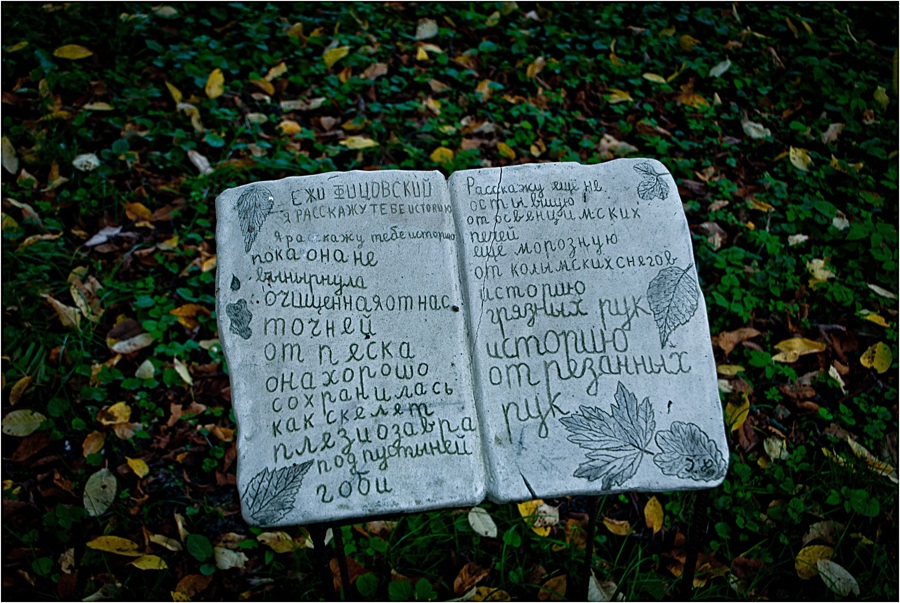 ЕЖИ ФИЦОВСКИЙ
Я РАССКАЖУ ТЕБЕ ИСТОРИЮ
Я расскажу тебе историю
пока она не
вынырнула
очищенная от нас
точней
от песка
она хорошо
сохранилась
как скелет
плезиозавра
под пустыней
гоби
Расскажу ещё не
остывшую
от освенцимских
печей
ещё морозную
от колымских снегов
историю
грязных рук
историю
отрезанных
рук